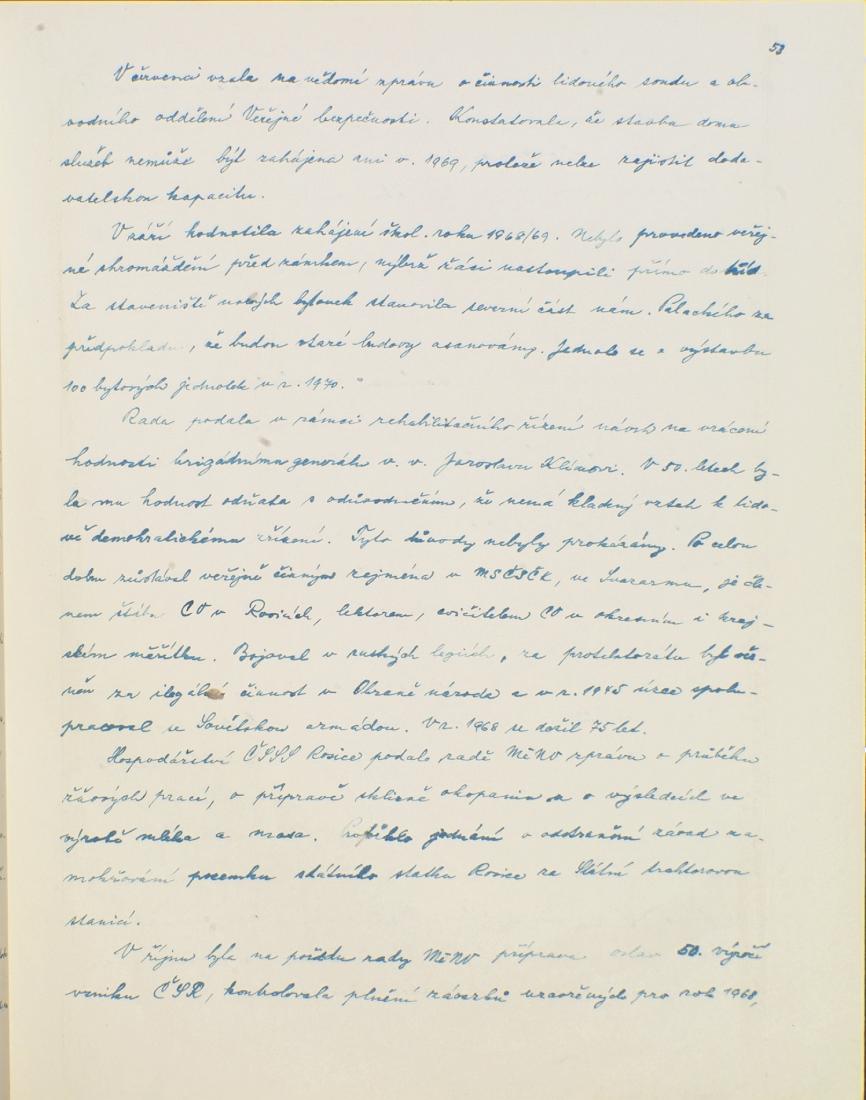 53
V červenci vzala na vědomí zprávu o činnosti lidového soudu a ob-
vodního oddělení Veřejné bezpečnosti. Konstatovala, že stavba domu
služeb nemůže být zahájena ani v r. 1969, protože nelze zajistit doda-
vatelskou kapacitu.
V září hodnotila zahájení škol. roku 1968/69. Nebylo provedeno veřej-
né shromáždění před zámkem, nýbrž žáci nastoupili přímo do tříd.
Za staveniště nových bytovek stanovila severní část nám. Palackého za
předpokladu, že budou staré budovy asanovány. Jednalo se o výstavbu
100 bytových jednotek v r. 1970.
Rada podala v rámci rehabilitačního řízení návrh na vrácení
hodnosti brigádnímu generálu v. v. Jaroslavu Klímovi. V 50. letech by-
la mu hodnost odňata s odůvodněním, že nemá kladný vztah k lido-
vě demokratickému zřízení. Tyto důvody nebyly prokázány. Po celou
dobu zůstával veřejně činným zejména v MSČSČK, ve Svazarmu, je čle-
nem štábu CO v Rosicích, lektorem, cvičitelem CO v okresním i kraj-
ském měřítku. Bojoval v ruských legiích, za protektorátu byl věz-
něn za ilegální činnost v Obraně národa a v r. 1945 úzce spolu-
pracoval se Sovětskou armádou. V r. 1968 se dožil 75 let.
Hospodářství ČSSS Rosice podalo radě MěNV zprávu o průběhu
žňových prací, o přípravě sklizně okopanin a o výsledcích ve
výrobě mléka a masa. Proběhlo jednání o odstranění závad za-
mokřování pozemku státního statku Rosice za Státní traktorovou
stanicí.
V říjnu byla na pořadu rady MěNV příprava oslav 50. výročí
vzniku ČSR, kontrolovala plnění závazků uzavřených pro rok 1968,